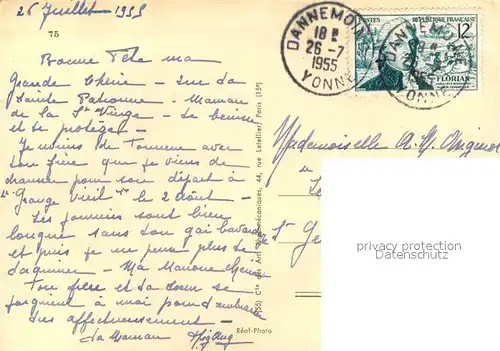 26 Juillet - 1955
75
Bonne Fête ma
Grande Chérie - que la
Sainte Patronne - Maman
de la Ste Vierge - Te bénisse
et te protège -
Je reviens de avec
ton frère que je viens de
pour son départ à
la Grange le 2 Août -
Les journées sont bien
longues sans son gai bavardage
et puis je ne peux plus te
- Ma Chérie
Ton frère et ta sœur se
joignent à moi pour t'embrasser
très affectueusement -
ta Maman
Réal-Photo
(55) Cie des Arts Photomécaniques, 44, rue Letellier, Paris (15e)
DANNEMOINE
18 H
26 -7
1955
YONNE
POSTES RÉPUBLIQUE FRANÇAISE
12F
FLORIAN
DANNEMOINE
26 -7
1955
YONNE
Mademoiselle A. M.
privacy protection